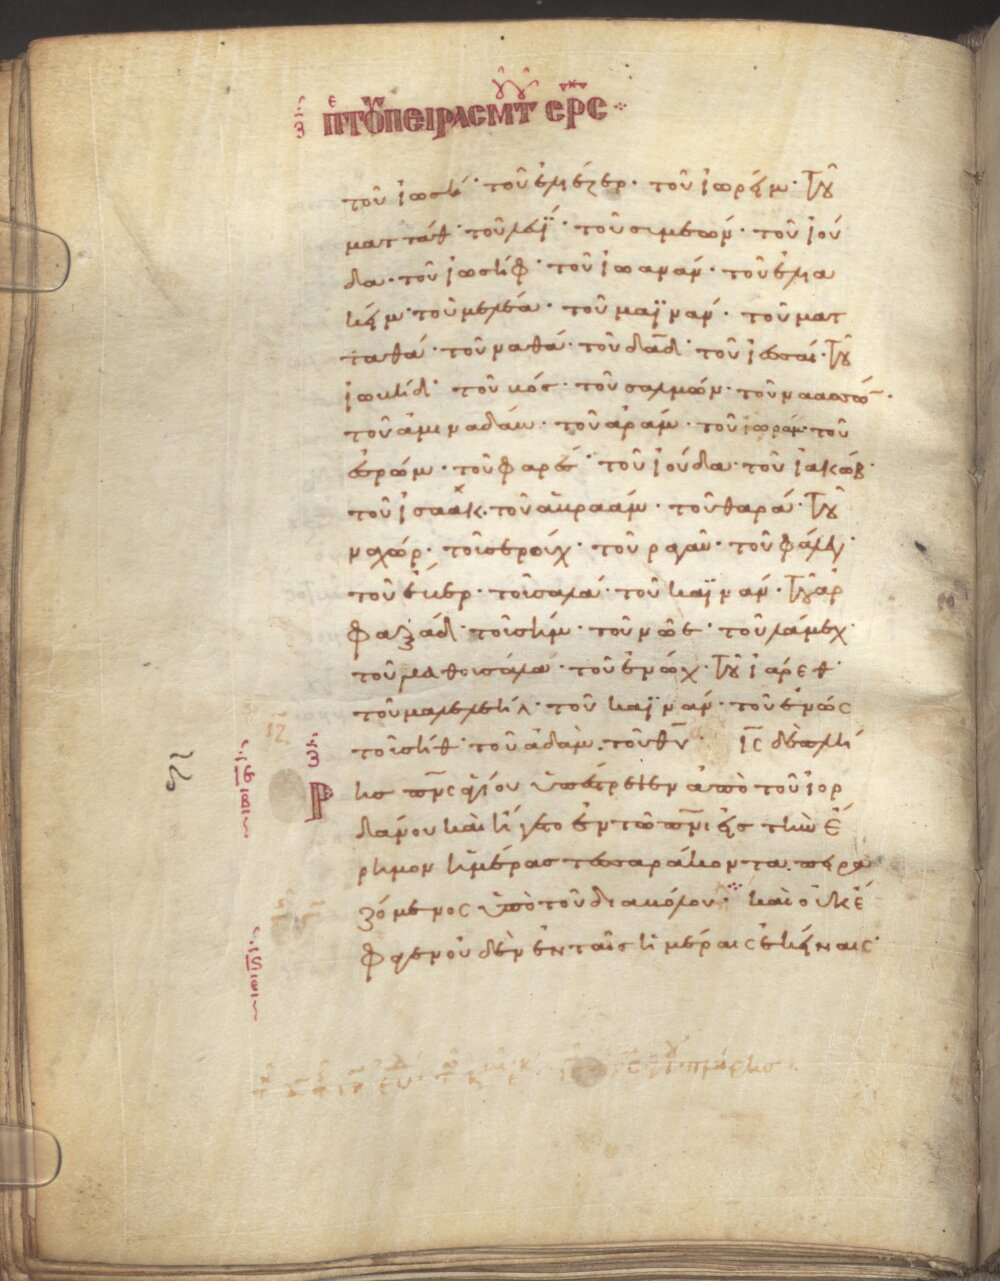 τοῦ ἰωσή· τοῦ ἐλιέζερ· τοῦ ἰωρείμ· τοῦ
ματτάθ· τοῦ λευΐ· τοῦ συμεών· τοῦ ἰού
δα· τοῦ ἰωσήφ· τοῦ ἰωανάν· τοῦ ἐλια
κείμ· τοῦ μελεά· τοῦ μαϊνάν· τοῦ ματ
ταθά· τοῦ ναθά· τοῦ δᾱδ· τοῦ ἰεσσαί· τοῦ
ἰωβήδ· τοῦ βόοζ· τοῦ σαλμών· τοῦ ναασσώ·
τοῦ ἀμιναδάμ· τοῦ ἀράμ· τοῦ ἰωράμ· τοῦ
ἐσρώμ· τοῦ φαρές· τοῦ ἰούδα· τοῦ ἰακώβ·
τοῦ ἰσαάκ· τοῦ ἀβραάμ· τοῦ θαρά· τοῦ
ναχώρ· τοῦ σερούχ· τοῦ ραγαῦ· τοῦ φάλεγ·
τοῦ ἔβερ· τοῦ σαλά· τοῦ καϊνάν· τοῦ ἀρ
φαξάδ· τοῦ σήμ· τοῦ νῶε· τοῦ λάμεχ·
τοῦ μαθουσάλα· τοῦ ἐνώχ· τοῦ ἰάρεθ·
τοῦ μαλελεήλ· τοῦ καϊνάν· τοῦ ἐνώς
τοῦ σήθ· τοῦ ἀδάμ· τοῦ θῡ· ῑς δὲ πλή
ρης πνς ἁγίου ὑπέστρεψεν ἀπὸ τοῦ ἰορ
δάνου καὶ ἤγετο ἐν τῶ πνι εἰς τὴν ἔ
ρημον ἡμέρας τεσσαράκοντα. πειρα
ζόμενος ὑπὸ τοῦ διαβόλου· καὶ οὐκ ἔ
φαγεν οὐδὲν ἐν ταῖς ἡμέραις ἐκείναις·